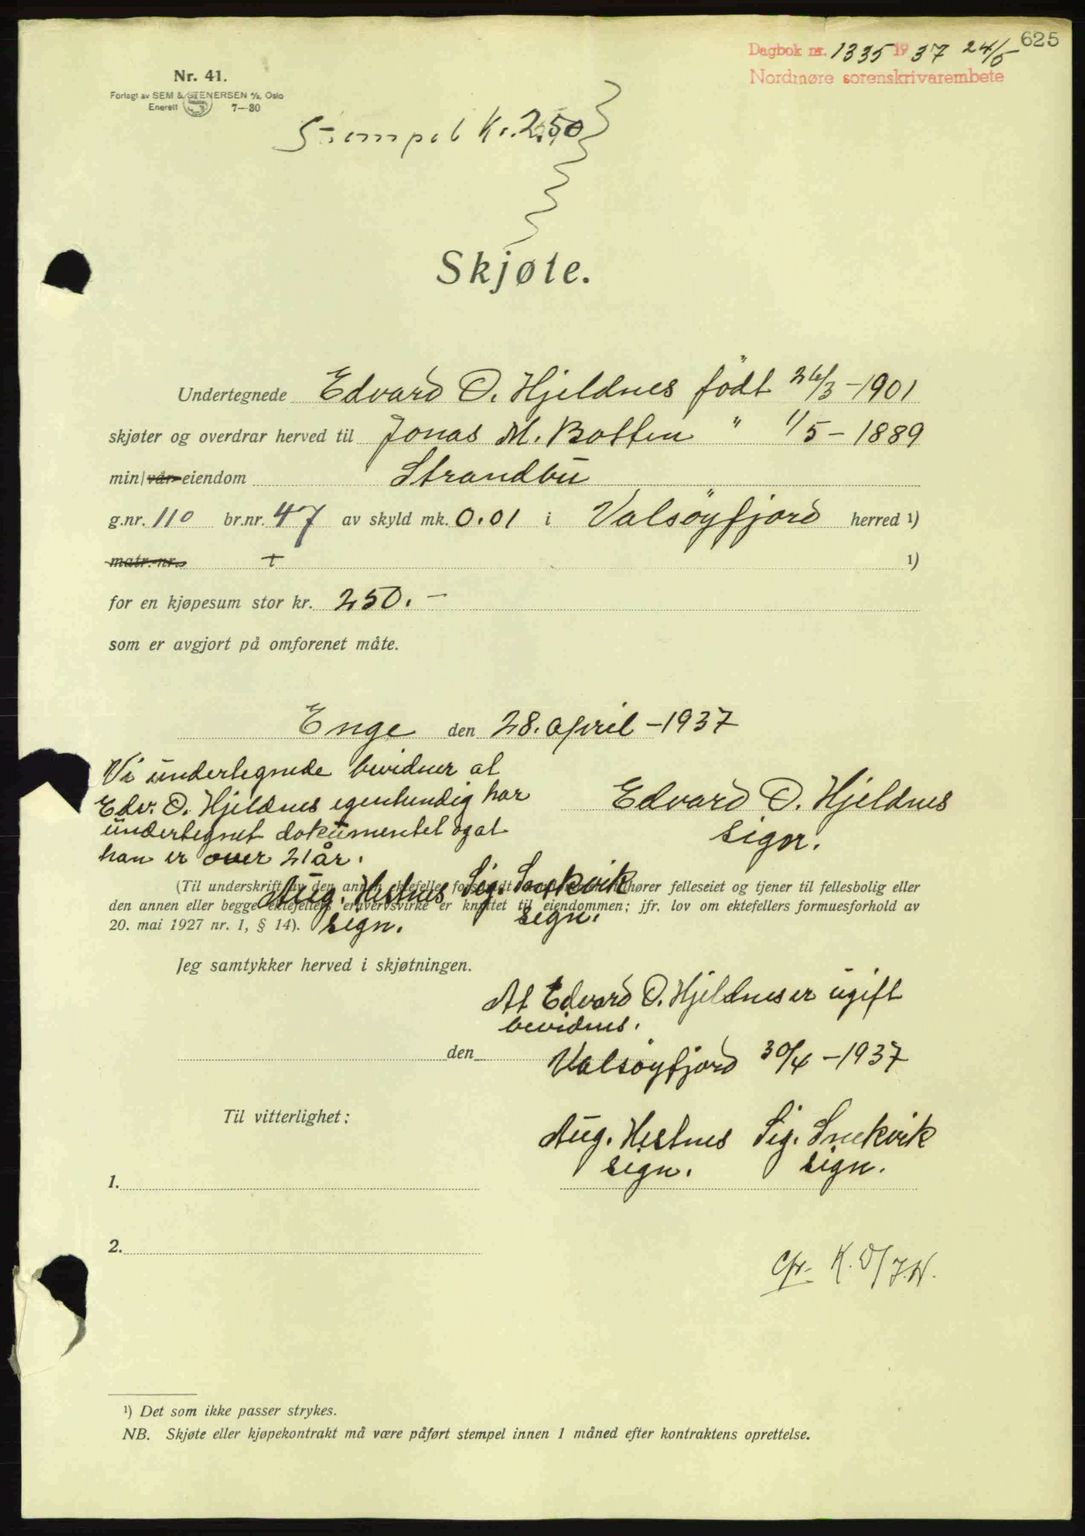 625
Dagbok nr. 1335 1937 24/5
Nordmøre sorenskrivarembete
Nr. 41.
Forlagt av SEM & STENERSEN A/S, Oslo
Enerett 7—30
Stempel kr. 2.50
Skjøte.
Undertegnede Edvard O. Hjeldnes født 26/3 - 1901
skjøter og overdrar herved til Jonas M. Botten " 1/5 - 1889
min/vår eiendom Strandbu
g.nr. 110 br.nr. 47 av skyld mk. 0.01 i Valsøyfjord herred ¹)
matr.-nr. ¹)
for en kjøpesum stor kr. 250. -
som er avgjort på omforenet måte.
Enge den 28. april - 1937
Vi undertegnede bevidner at
Edv. O. Hjeldnes egenhendig har
undertegnet dokumentet og at
han er over 21 år.
Edvard O. Hjeldnes
sign.
Aug. Hestnes Sig. Snekvik
sign. sign.
(Til underskrift av den annen ektefelle forsåvidt hører felleseiet og tjener til fellesbolig eller
den annen eller begge ektefellers erhvervsvirke er knyttet til eiendommen; jfr. lov om ektefellers formuesforhold av
20. mai 1927 nr. 1, § 14).
Jeg samtykker herved i skjøtningen.
At Edvard O. Hjeldnes er ugift
bevidnes.
den
Valsøyfjord 30/4 - 1937
Til vitterlighet:
Aug. Hestnes Sig. Snekvik
sign. sign.
1.
2.
Cfr. K. O/J.N.
¹) Det som ikke passer strykes.
NB. Skjøte eller kjøpekontrakt må være påført stempel innen 1 måned efter kontraktens oprettelse.